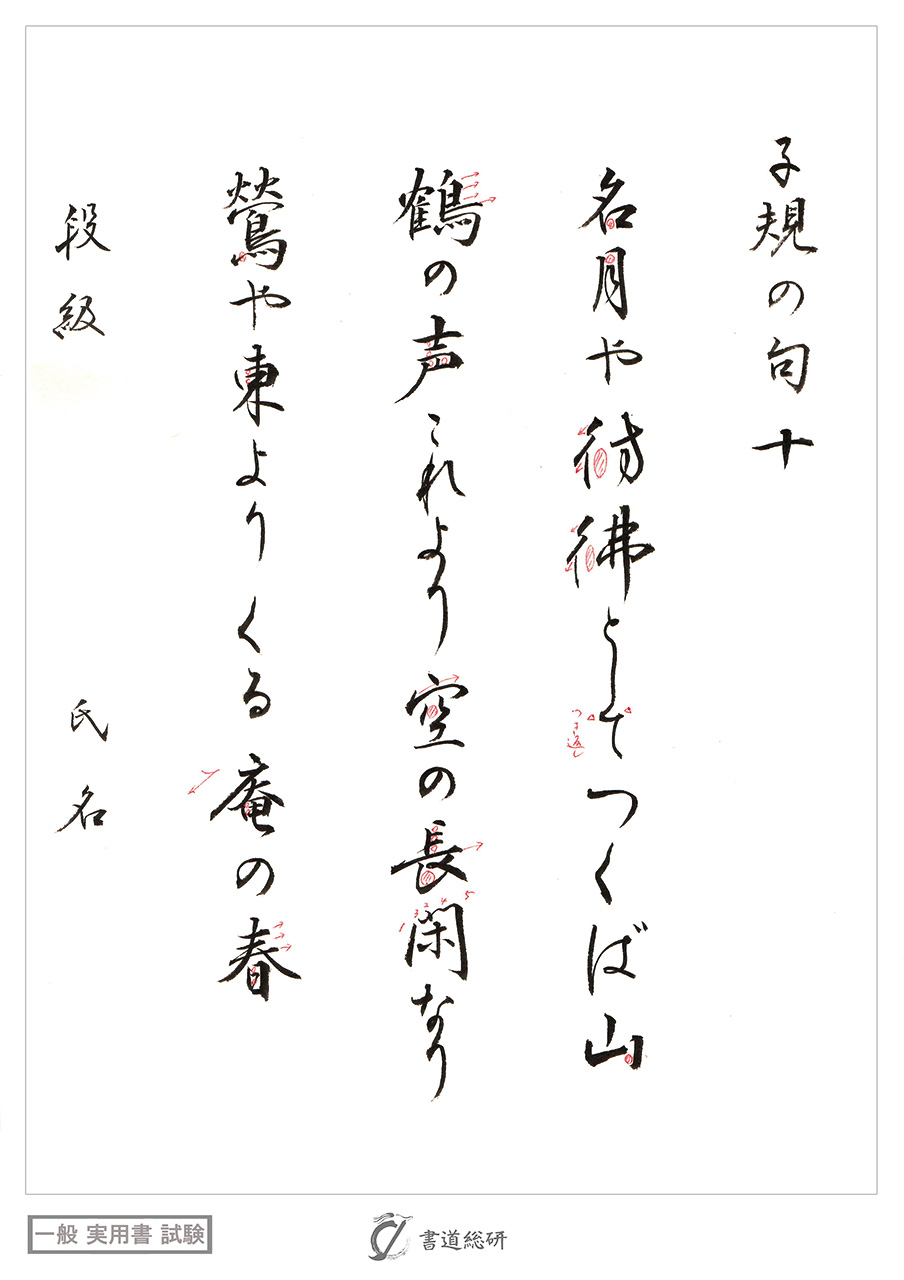 子規の句十
名月や彷彿としてつくば山
鶴の声これより空の長閑なり
鶯や東よりくる庵の春
段級 氏名
つき返し
1 3 2 4 5
一般 実用書 試験
書道総研